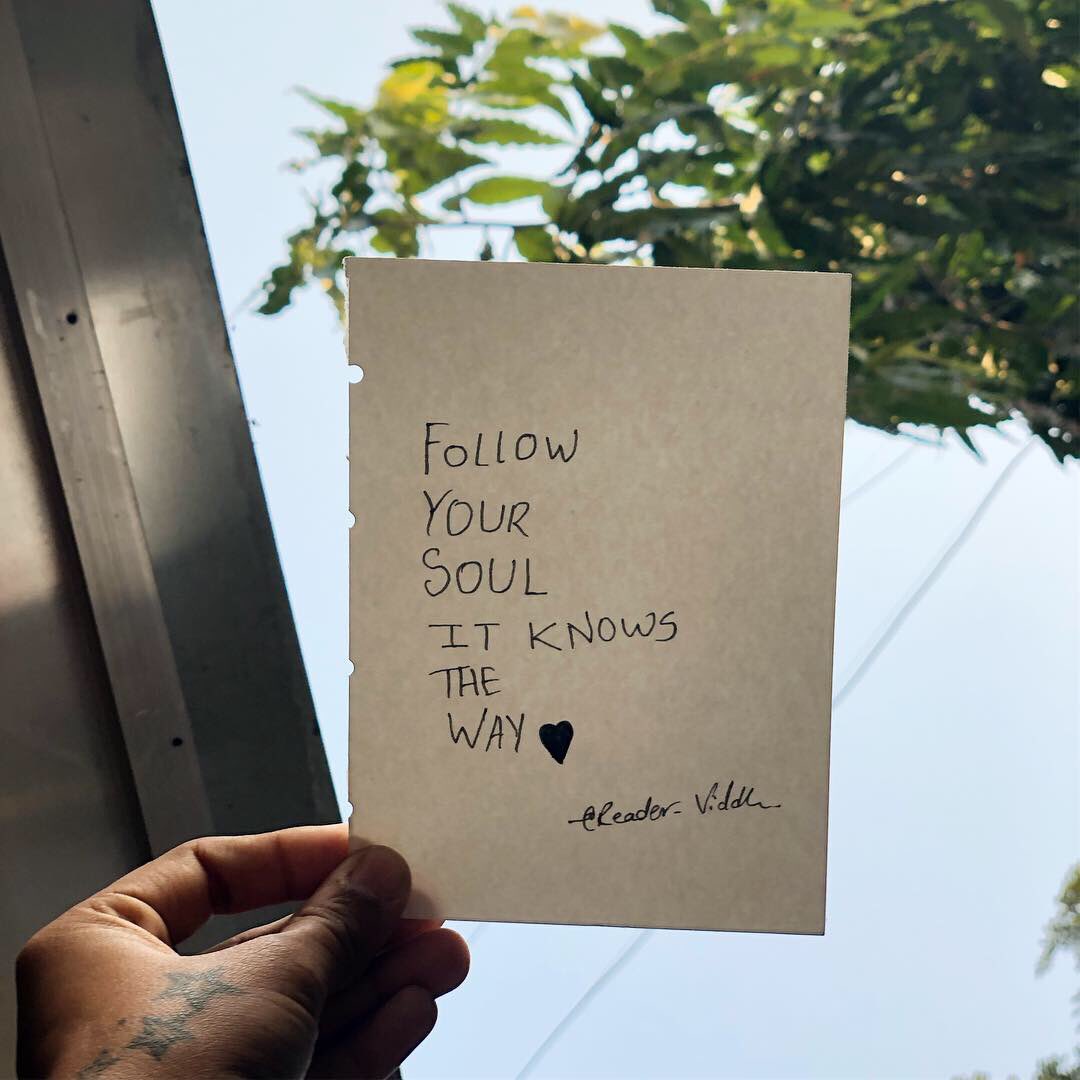 FOLLOW
YOUR
SOUL
IT KNOWS
THE
WAY
@Reader_